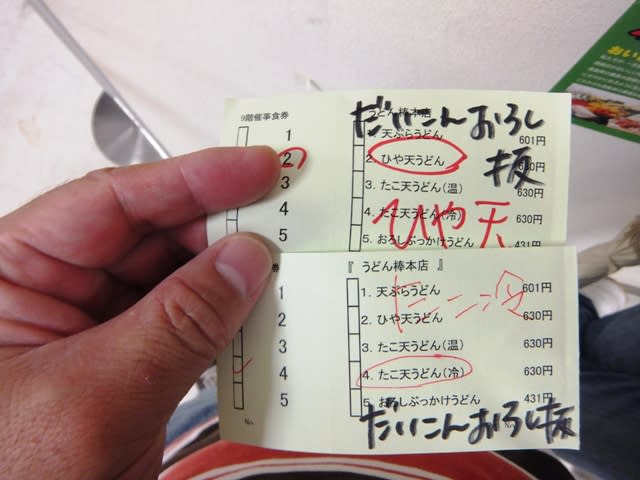 9階催事食券
うどん棒本店
だいこんおろし
抜
1
1. 天ぷらうどん 601円
2
2. ひや天うどん 630円
3
3. たこ天うどん(温) 630円
4
4. たこ天うどん(冷) 630円
ひや天
5
5. おろしぶっかけうどん 431円
券
『 うどん棒本店 』
1
1. 天ぷらうどん 601円
たこ冷
2
2. ひや天うどん 630円
3
3. たこ天うどん(温) 630円
4
4. たこ天うどん(冷) 630円
5
5. おろしぶっかけうどん 431円
だいこんおろし抜
No.